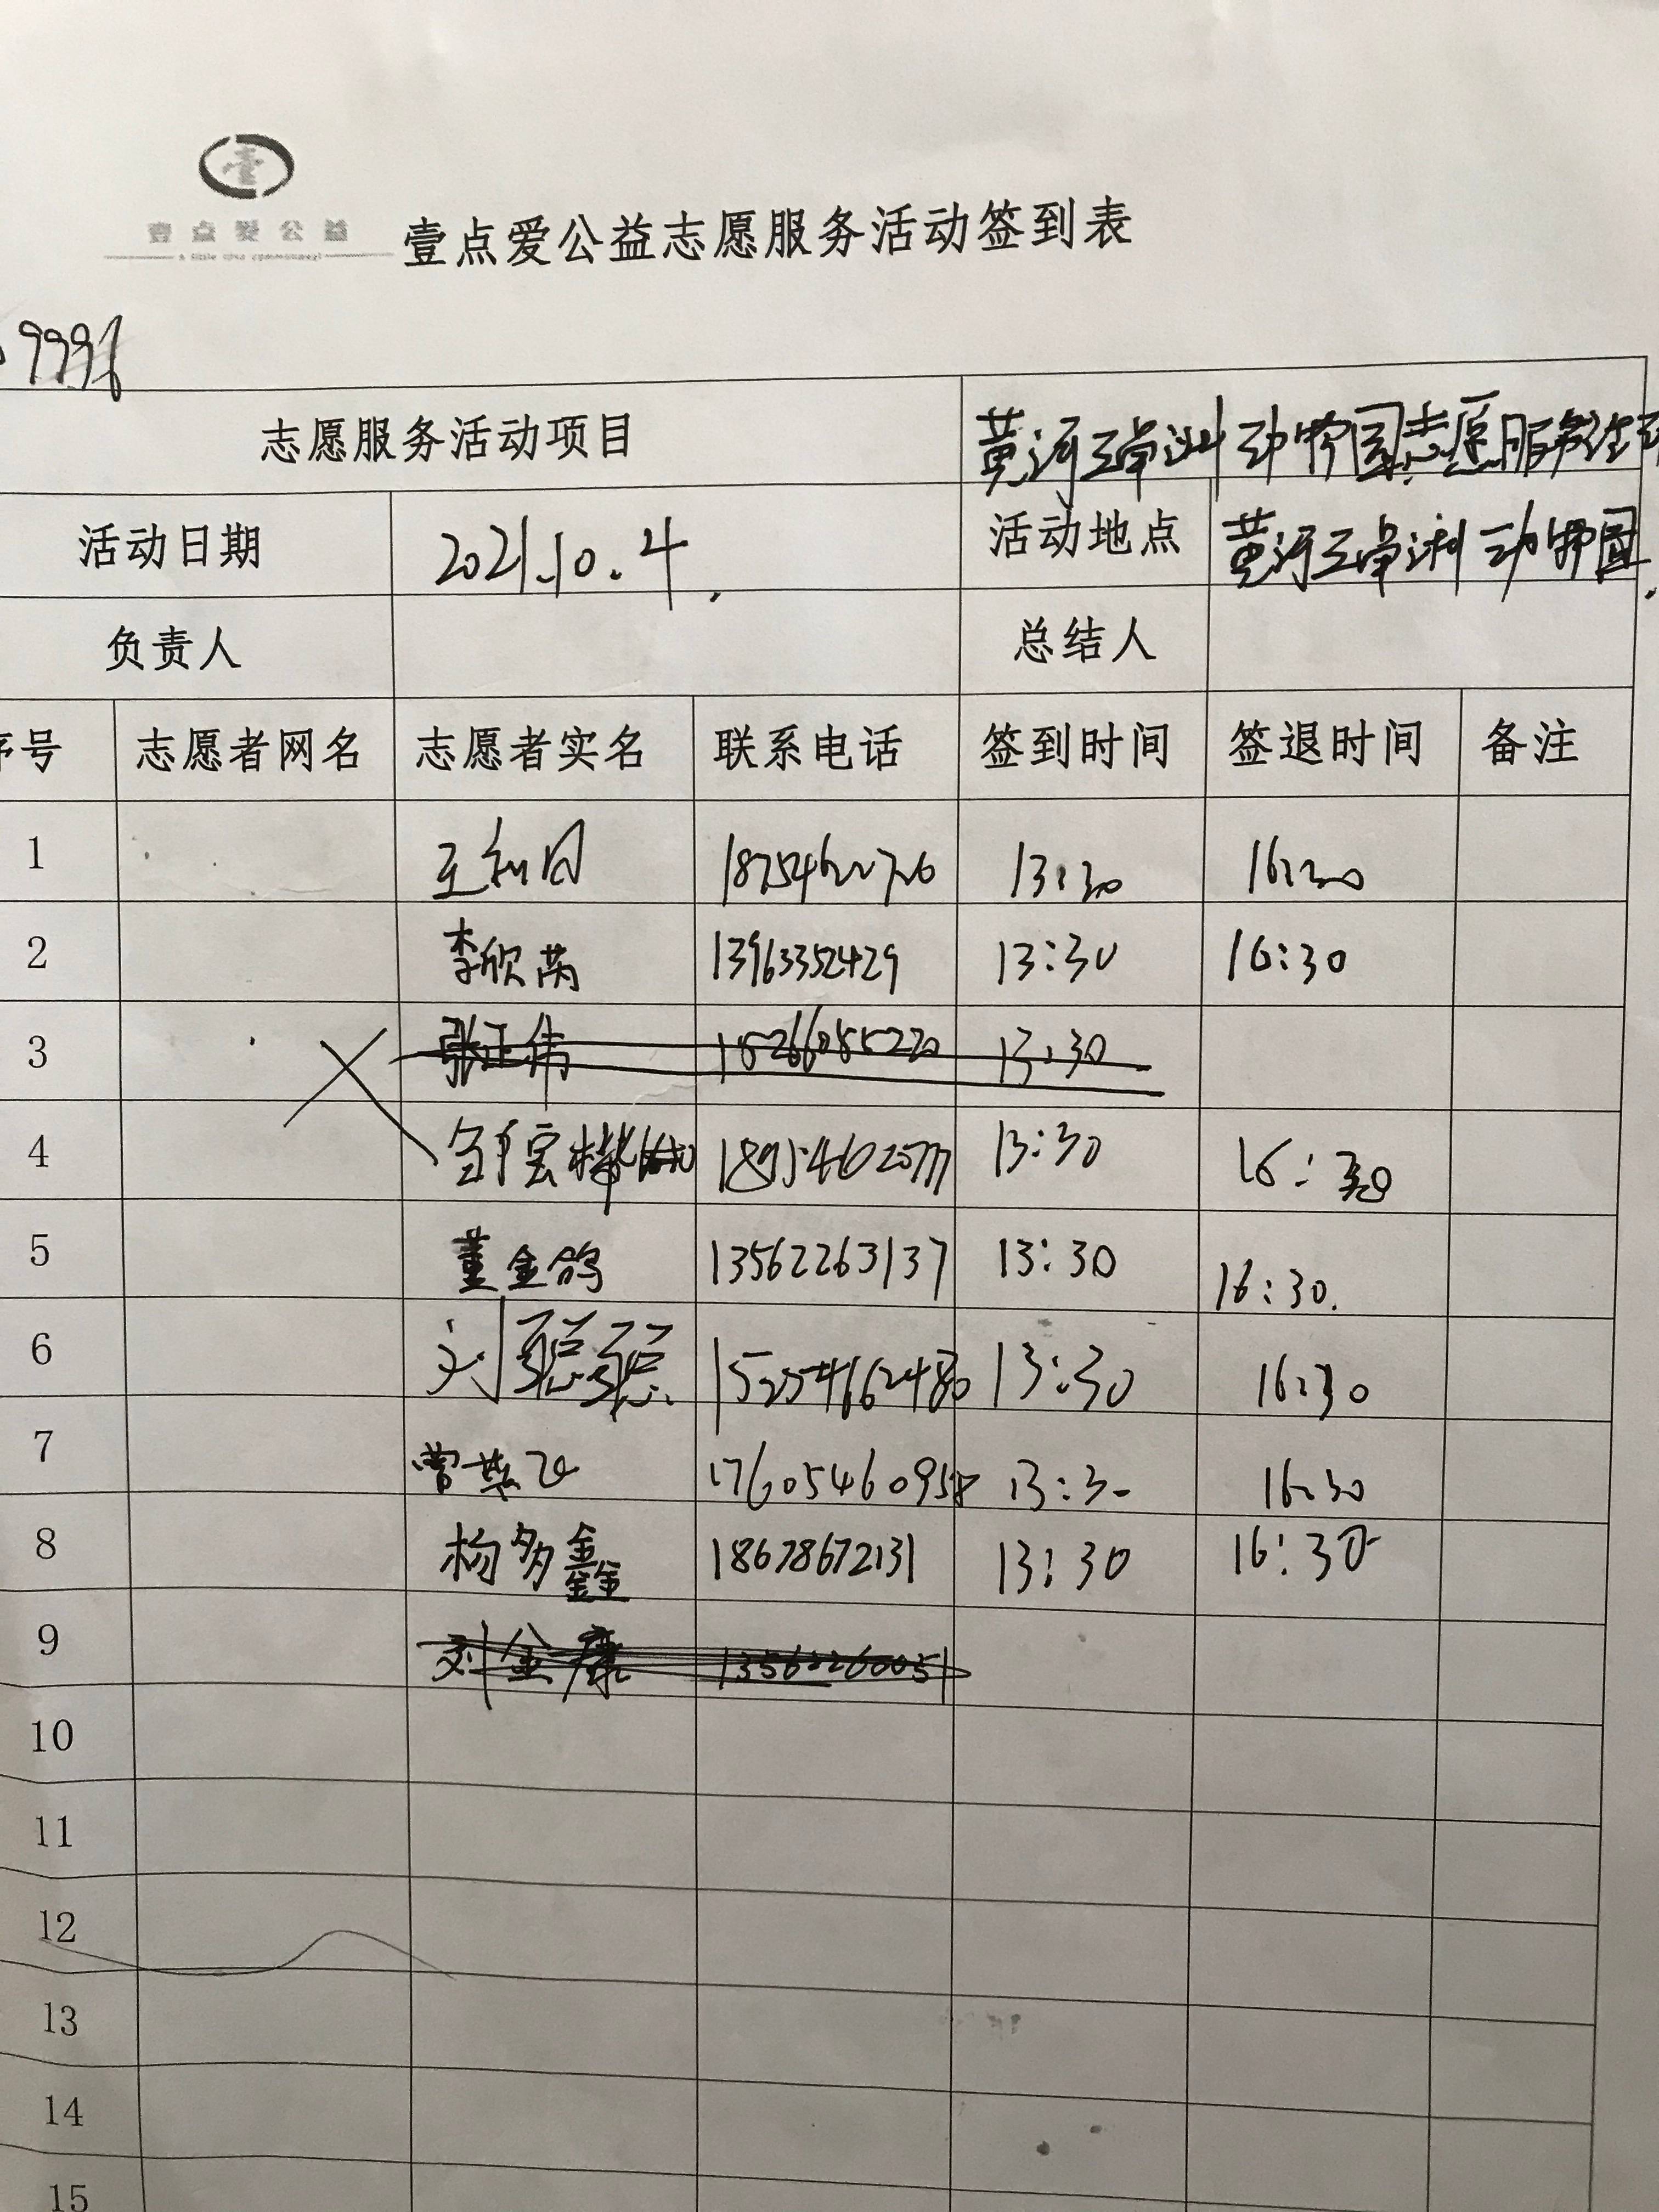 壹点爱公益
壹点爱公益志愿服务活动签到表
志愿服务活动项目 黄河三角洲动物园志愿服务
活动日期 2021.10.4. 活动地点 黄河三角洲动物园.
负责人 总结人
序号 志愿者网名 志愿者实名 联系电话 签到时间 签退时间 备注
1 13:30 16:30
2 李欣芮 13963352429 13:30 16:30
3 张正伟 13:30
4 13:30 16:30
5 董金鸽 13562263137 13:30 16:30.
6 刘聪聪 15254662480 13:30 16:30
7 13:30 16:30
8 杨多鑫 18678672131 13:30 16:30
9 刘金康 13562260051
10
11
12
13
14
15